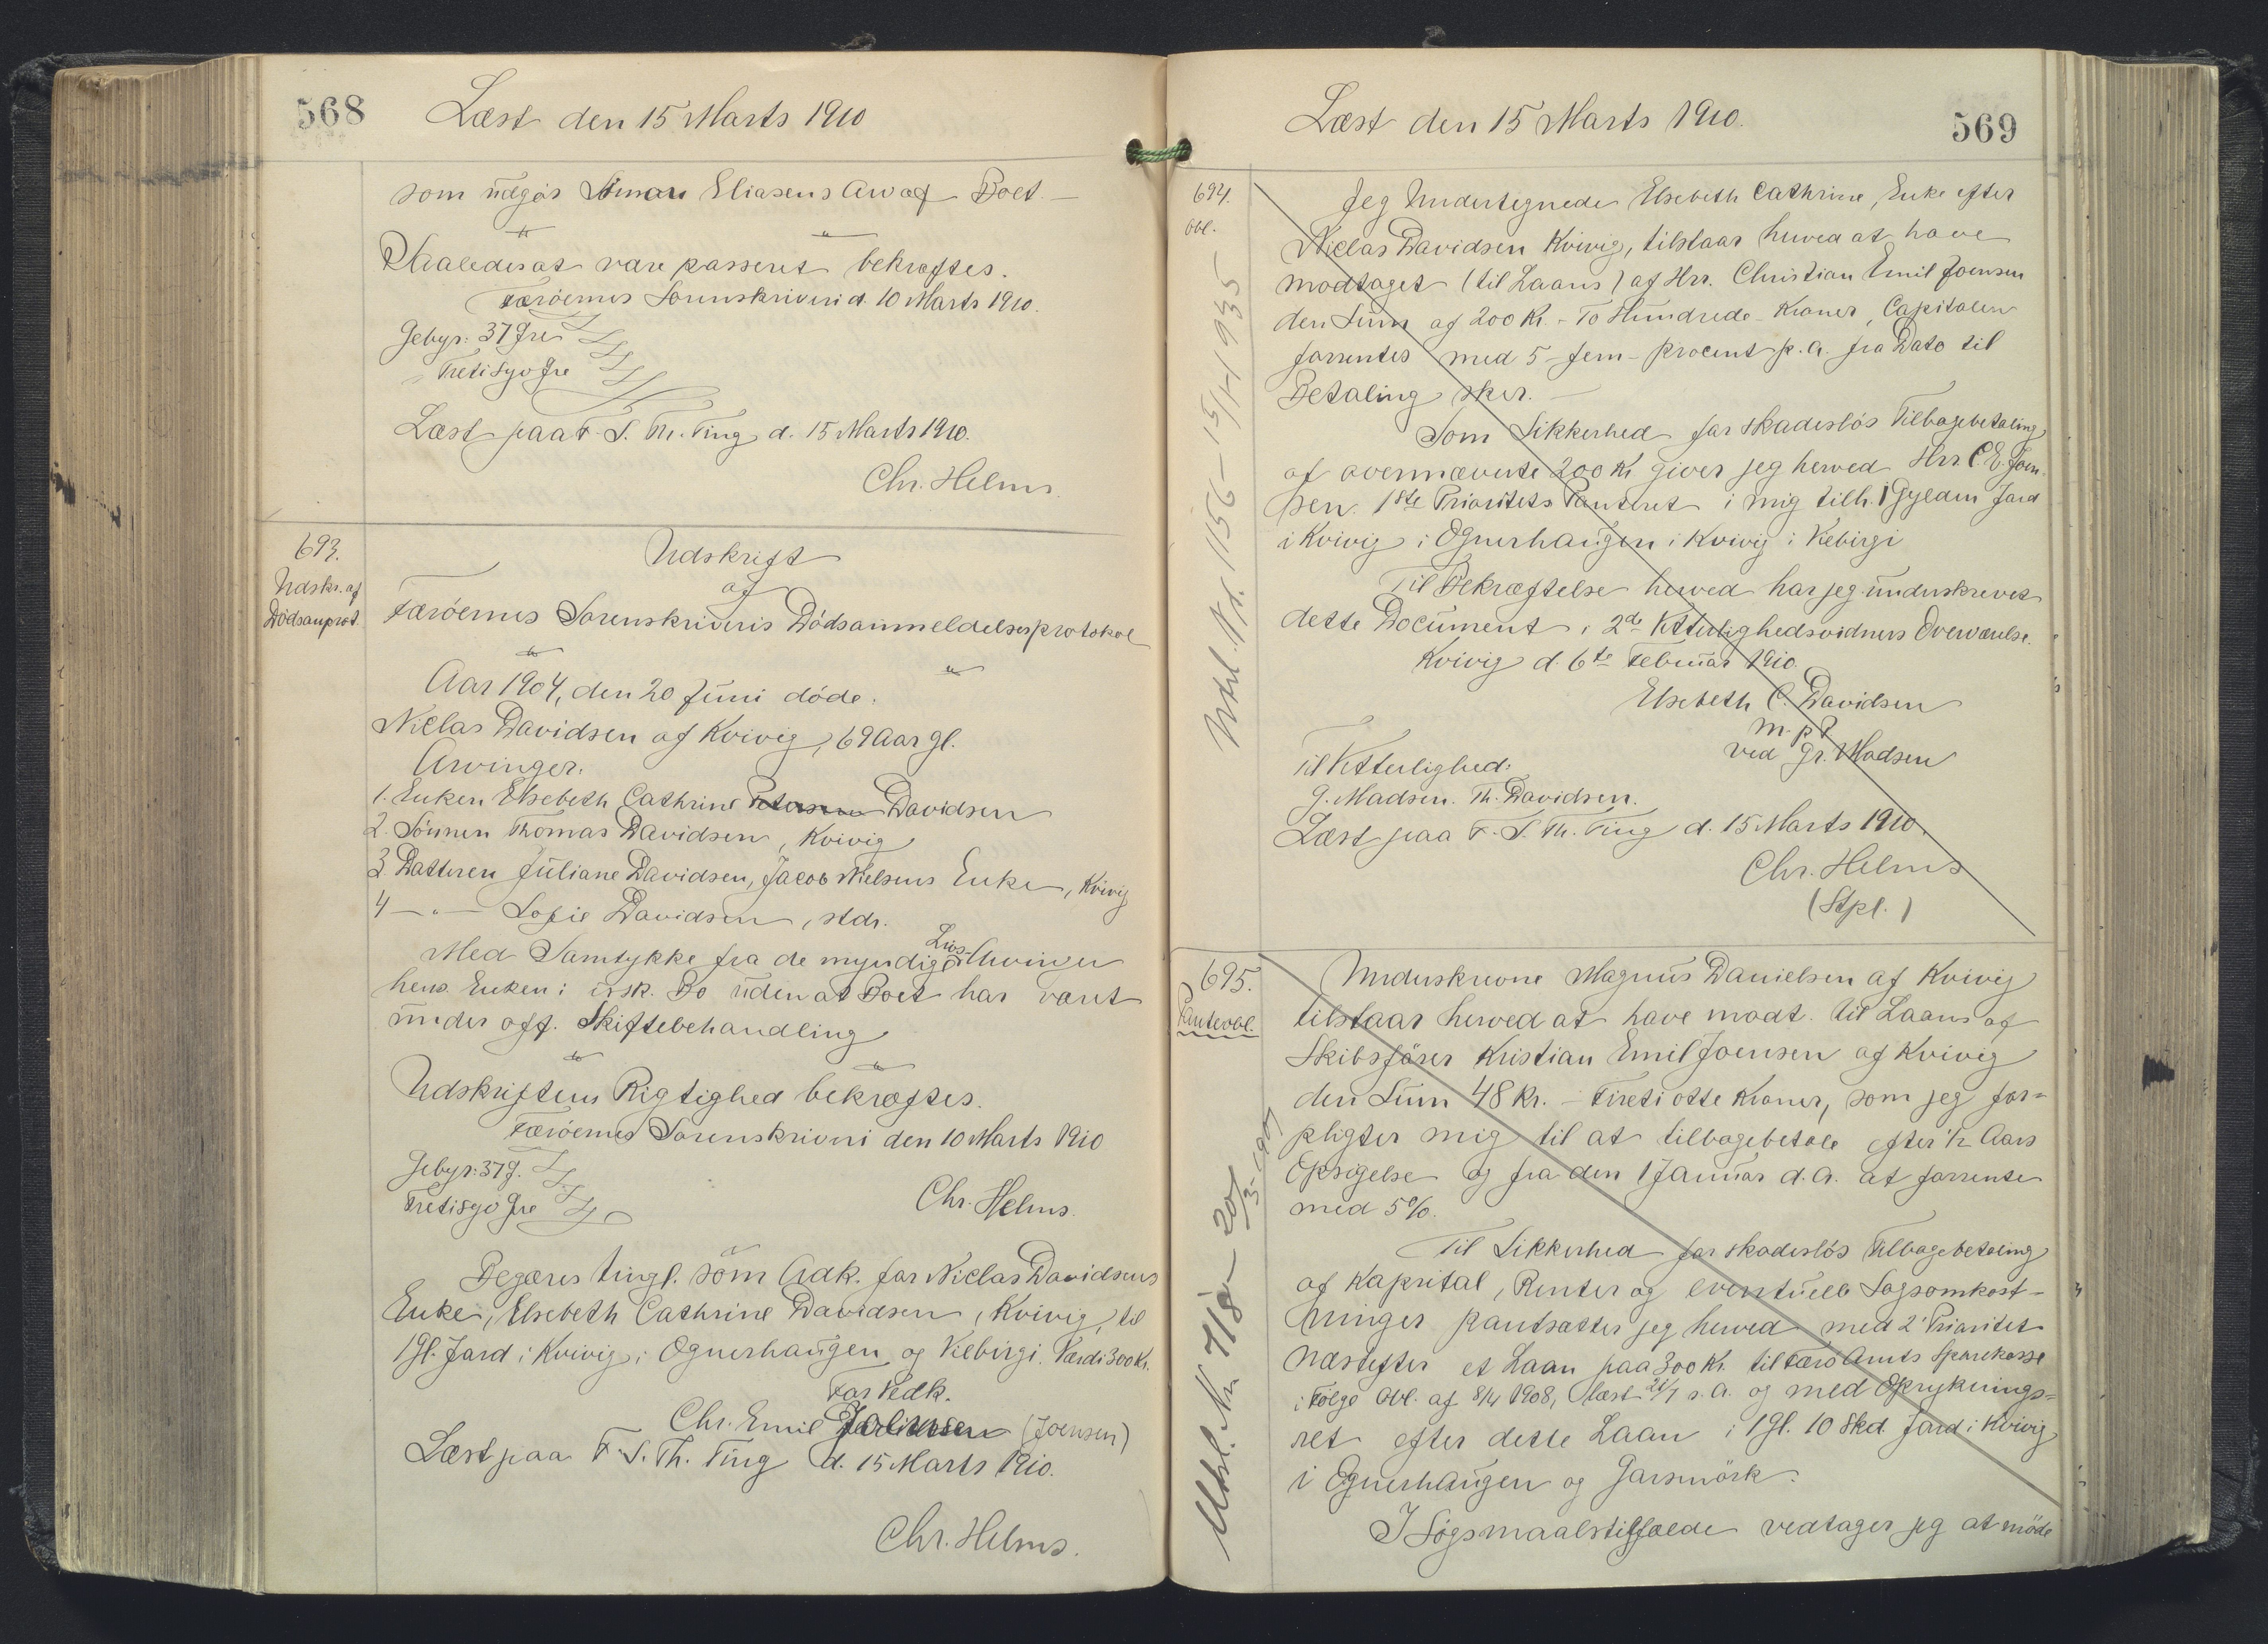 568
Læst den 15 Marts 1910
som udgør Simon Eliasens Arv af Boet. —
Saaledes at være passeret bekræftes.
Færöernes Sorenskriveri d. 10 Marts 1910.
Gebyr: 37 Øre
Tretisyv Øre
Læst paa F. S. Th. Ting d. 15 Marts 1910.
Chr. Helms.
693.
Udskr. af
Dödsanprot.
Udskrift
af
Færöernes Sorenskriveris Dödsanmeldelsesprotokol
Aar 1904, den 20 Juni döde.
Niclas Davidsen af Kvivig, 69 Aar gl.
Arvinger.
1. Enken Elsebeth Cathrine Petersen Davidsen
2. Sönnen Thomas Davidsen, Kvivig
3. Datteren Juliane Davidsen, Jacob Nielsens Enke, Kvivig
4 — " — Sofie Davidsen, stdr.
Med Samtykke fra de myndige Livs-Arvinger
hens. Enken i usk. Bo uden at Boet har været
under off. Skiftebehandling
Udskriftens Rigtighed bekræftes.
Færöernes Sorenskriveri den 10 Marts 1910
Gebyr: 37 Ø.
Tretisyv Øre
Chr. Helms.
Begæres tingl. som Adk. for Niclas Davidsens
Enke, Elsebeth Cathrine Davidsen, Kvivig, til
1 Gl. Jord i Kvivig i Ognerhaugen og Viebirgi. Værdi 300 Kr.
For Vedk.
Chr. Emil Joensen (Joensen)
Læst paa F. S. Th. Ting d. 15 Marts 1910.
Chr. Helms.
Læst den 15 Marts 1910.
569
694.
Obl.
Jeg Undertegnede Elsebeth Cathrine, Enke efter
Niclas Davidsen Kvivig, tilstaar herved at have
modtaget (til Laans) af Hrr. Christian Emil Joensen
den Sum af 200 Kr. - To Hundrede - Kroner, Capitalen
forrentes med 5 - fem - Procent p. a. fra Dato til
Betaling sker. —
Som Sikkerhed for skadeslös Tilbagebetaling
af ovennævnte 200 Kr giver jeg herved Hrr. C. E. Joen-
sen. 1ste Prioritets Panteret i mig tilh. 1 Gylden Jord
i Kvivig i Ognerhaugen i Kvivig i Viebirgi
Til Bekræftelse herved har jeg underskrevet
dette Document i 2de Vitterlighedsvidners Overværelse.
Kvivig d. 6te Februar 1910.
Elsebeth C. Davidsen
m. p. P
ved Gr. Madsen
Til Vitterlighed:
G. Madsen. Th. Davidsen.
Læst paa F. S. Th. Ting d. 15 Marts 1910.
Chr. Helms
(Stpl.)
Udsl. Nr. 1156 — 15/11 1935
695.
Panteobl.
Underskrevne Magnus Danielsen af Kvivig
tilstaar herved at have modt. til Laans af
Skibsförer Kristian Emil Joensen af Kvivig
den Sum 48 Kr. — Fireti otte Kroner, som jeg for-
pligter mig til at tilbagebetale efter 1/2 Aars
Opsigelse og fra den 1 Januar d. A. at forrente
med 5%.
Til Sikkerhed for skadeslös Tilbagebetaling
af Kapital, Renter og eventuelle Sagsomkost-
ninger pantsætter jeg herved med 2' Prioritet
næstefter et Laan paa 300 Kr. til Færö Amts Sparekasse
i Følge Obl. af 8/4 1908, læst 21/7 s. A. og med Oprykknings-
ret efter dette Laan i 1 Gl. 10 Skd. Jord i Kvivig
i Ognerhaugen og Garsmörk.
I Søgsmaalstilfælde vedtager jeg at möde